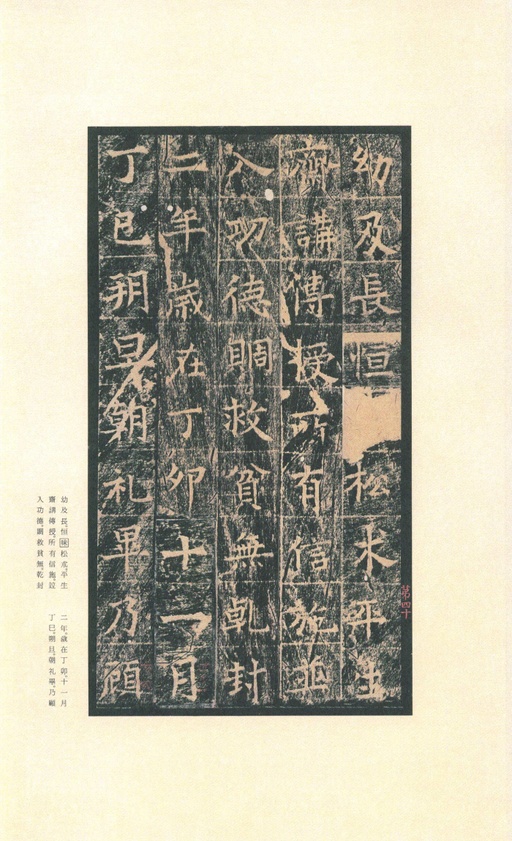 幼及長恒松朮平生
齋講傳授所有信施並
入功德賙救貧無乹封
二年歲在丁卯十一月
丁巳朔旦朝礼畢乃顧
第四十
幼及長、恒味松朮。平生
齋講傳授、所有信施竝
入功德、賙救貧無。乾封
二年、歲在丁卯、十一月
丁巳、朔旦、朝礼畢、乃顧